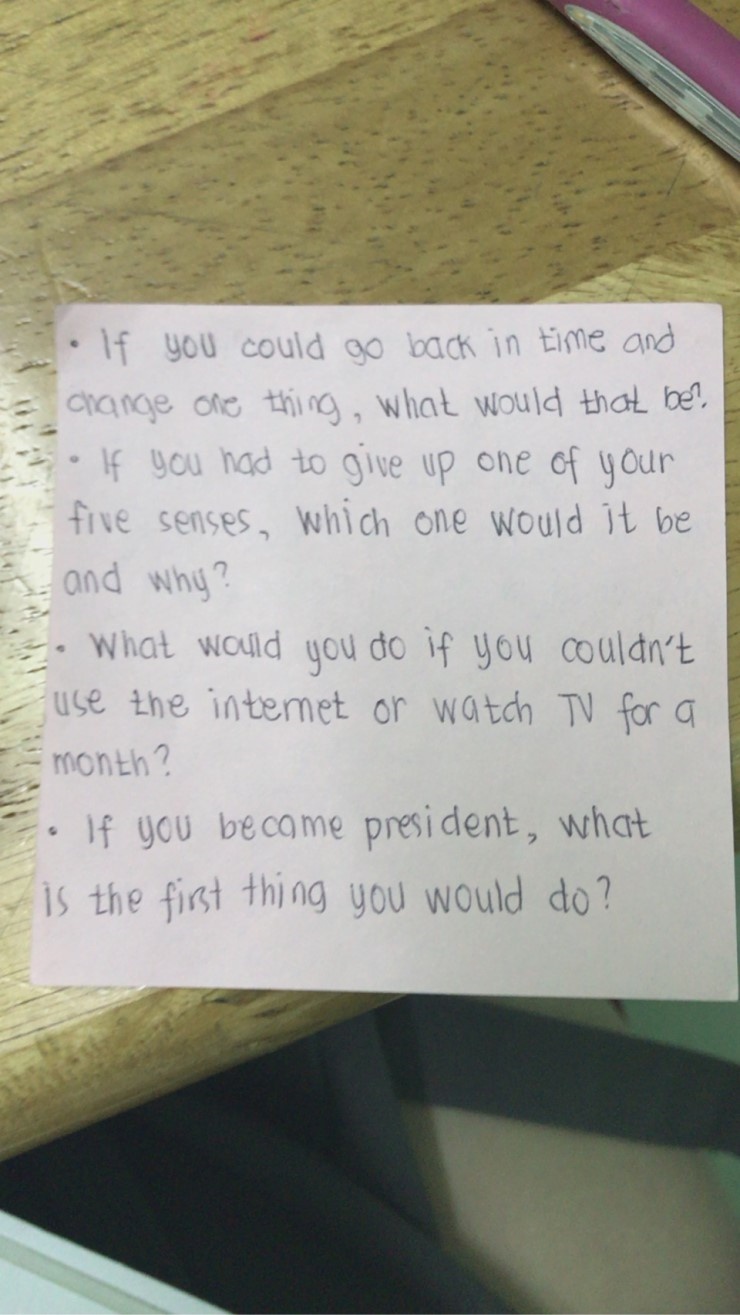 • If you could go back in time and
change one thing, what would that be?.
• If you had to give up one of your
five senses, which one would it be
and why?
• What would you do if you couldn't
use the internet or watch TV for a
month?
• If you became president, what
is the first thing you would do?